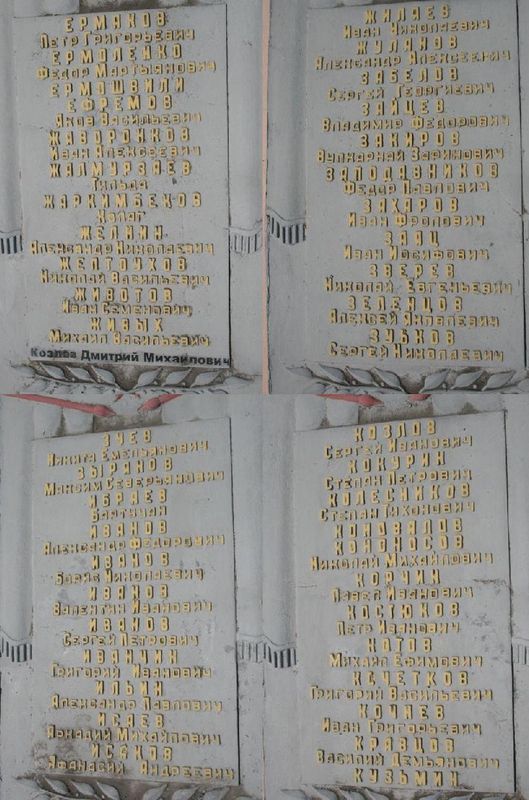 ЕРМАКОВ
Петр Григорьевич
ЕРМОЛЕНКО
Федор Мартьянович
ЕРМОШВИЛИ
ЕФРЕМОВ
Яков Васильевич
ЖАВОРОНКОВ
Иван Алексеевич
ЖАЛМУРЗАЕВ
Тильда
ЖАРКИМБЕКОВ
Калаг
ЖЕЛНИН
Александр Николаевич
ЖЕЛТОУХОВ
Николай Васильевич
ЖИВОТОВ
Иван Семенович
ЖИВЫХ
Михаил Васильевич
Козлов Дмитрий Михайлович
ЖИЛЯЕВ
Иван Николаевич
ЖУЛАНОВ
Александр Алексеевич
ЗАБЕЛОВ
Сергей Георгиевич
ЗАЙЦЕВ
Владимир Федорович
ЗАКИРОВ
Вулкарнай Заринович
ЗАПОДАВНИКОВ
Федор Павлович
ЗАХАРОВ
Иван Фролович
ЗАЯЦ
Иван Иосифович
ЗВЕРЕВ
Николай Евгеньевич
ЗЕЛЕНЦОВ
Алексей Яковлевич
ЗУБКОВ
Сергей Николаевич
ЗУЕВ
Никита Емельянович
ЗЫРЯНОВ
Максим Северьянович
ИБРАЕВ
ИВАНОВ
Александр Федорович
ИВАНОВ
Борис Николаевич
ИВАНОВ
Валентин Иванович
ИВАНОВ
Сергей Петрович
ИВАНЧИН
Григорий Иванович
ИЛЬИН
Александр Павлович
ИСАЕВ
Аркадий Михайлович
ИСАКОВ
Афанасий Андреевич
КОЗЛОВ
Сергей Иванович
КОКУРИН
Степан Петрович
КОЛЕСНИКОВ
Степан Тихонович
КОНОВАЛОВ
КОНОНОСОВ
Николай Михайлович
КОРЧИН
Павел Иванович
КОСТЮКОВ
Петр Иванович
КОТОВ
Михаил Ефимович
КОЧЕТКОВ
Григорий Васильевич
КОЧНЕВ
Иван Григорьевич
КРАВЦОВ
Василий Демьянович
КУЗЬМИН